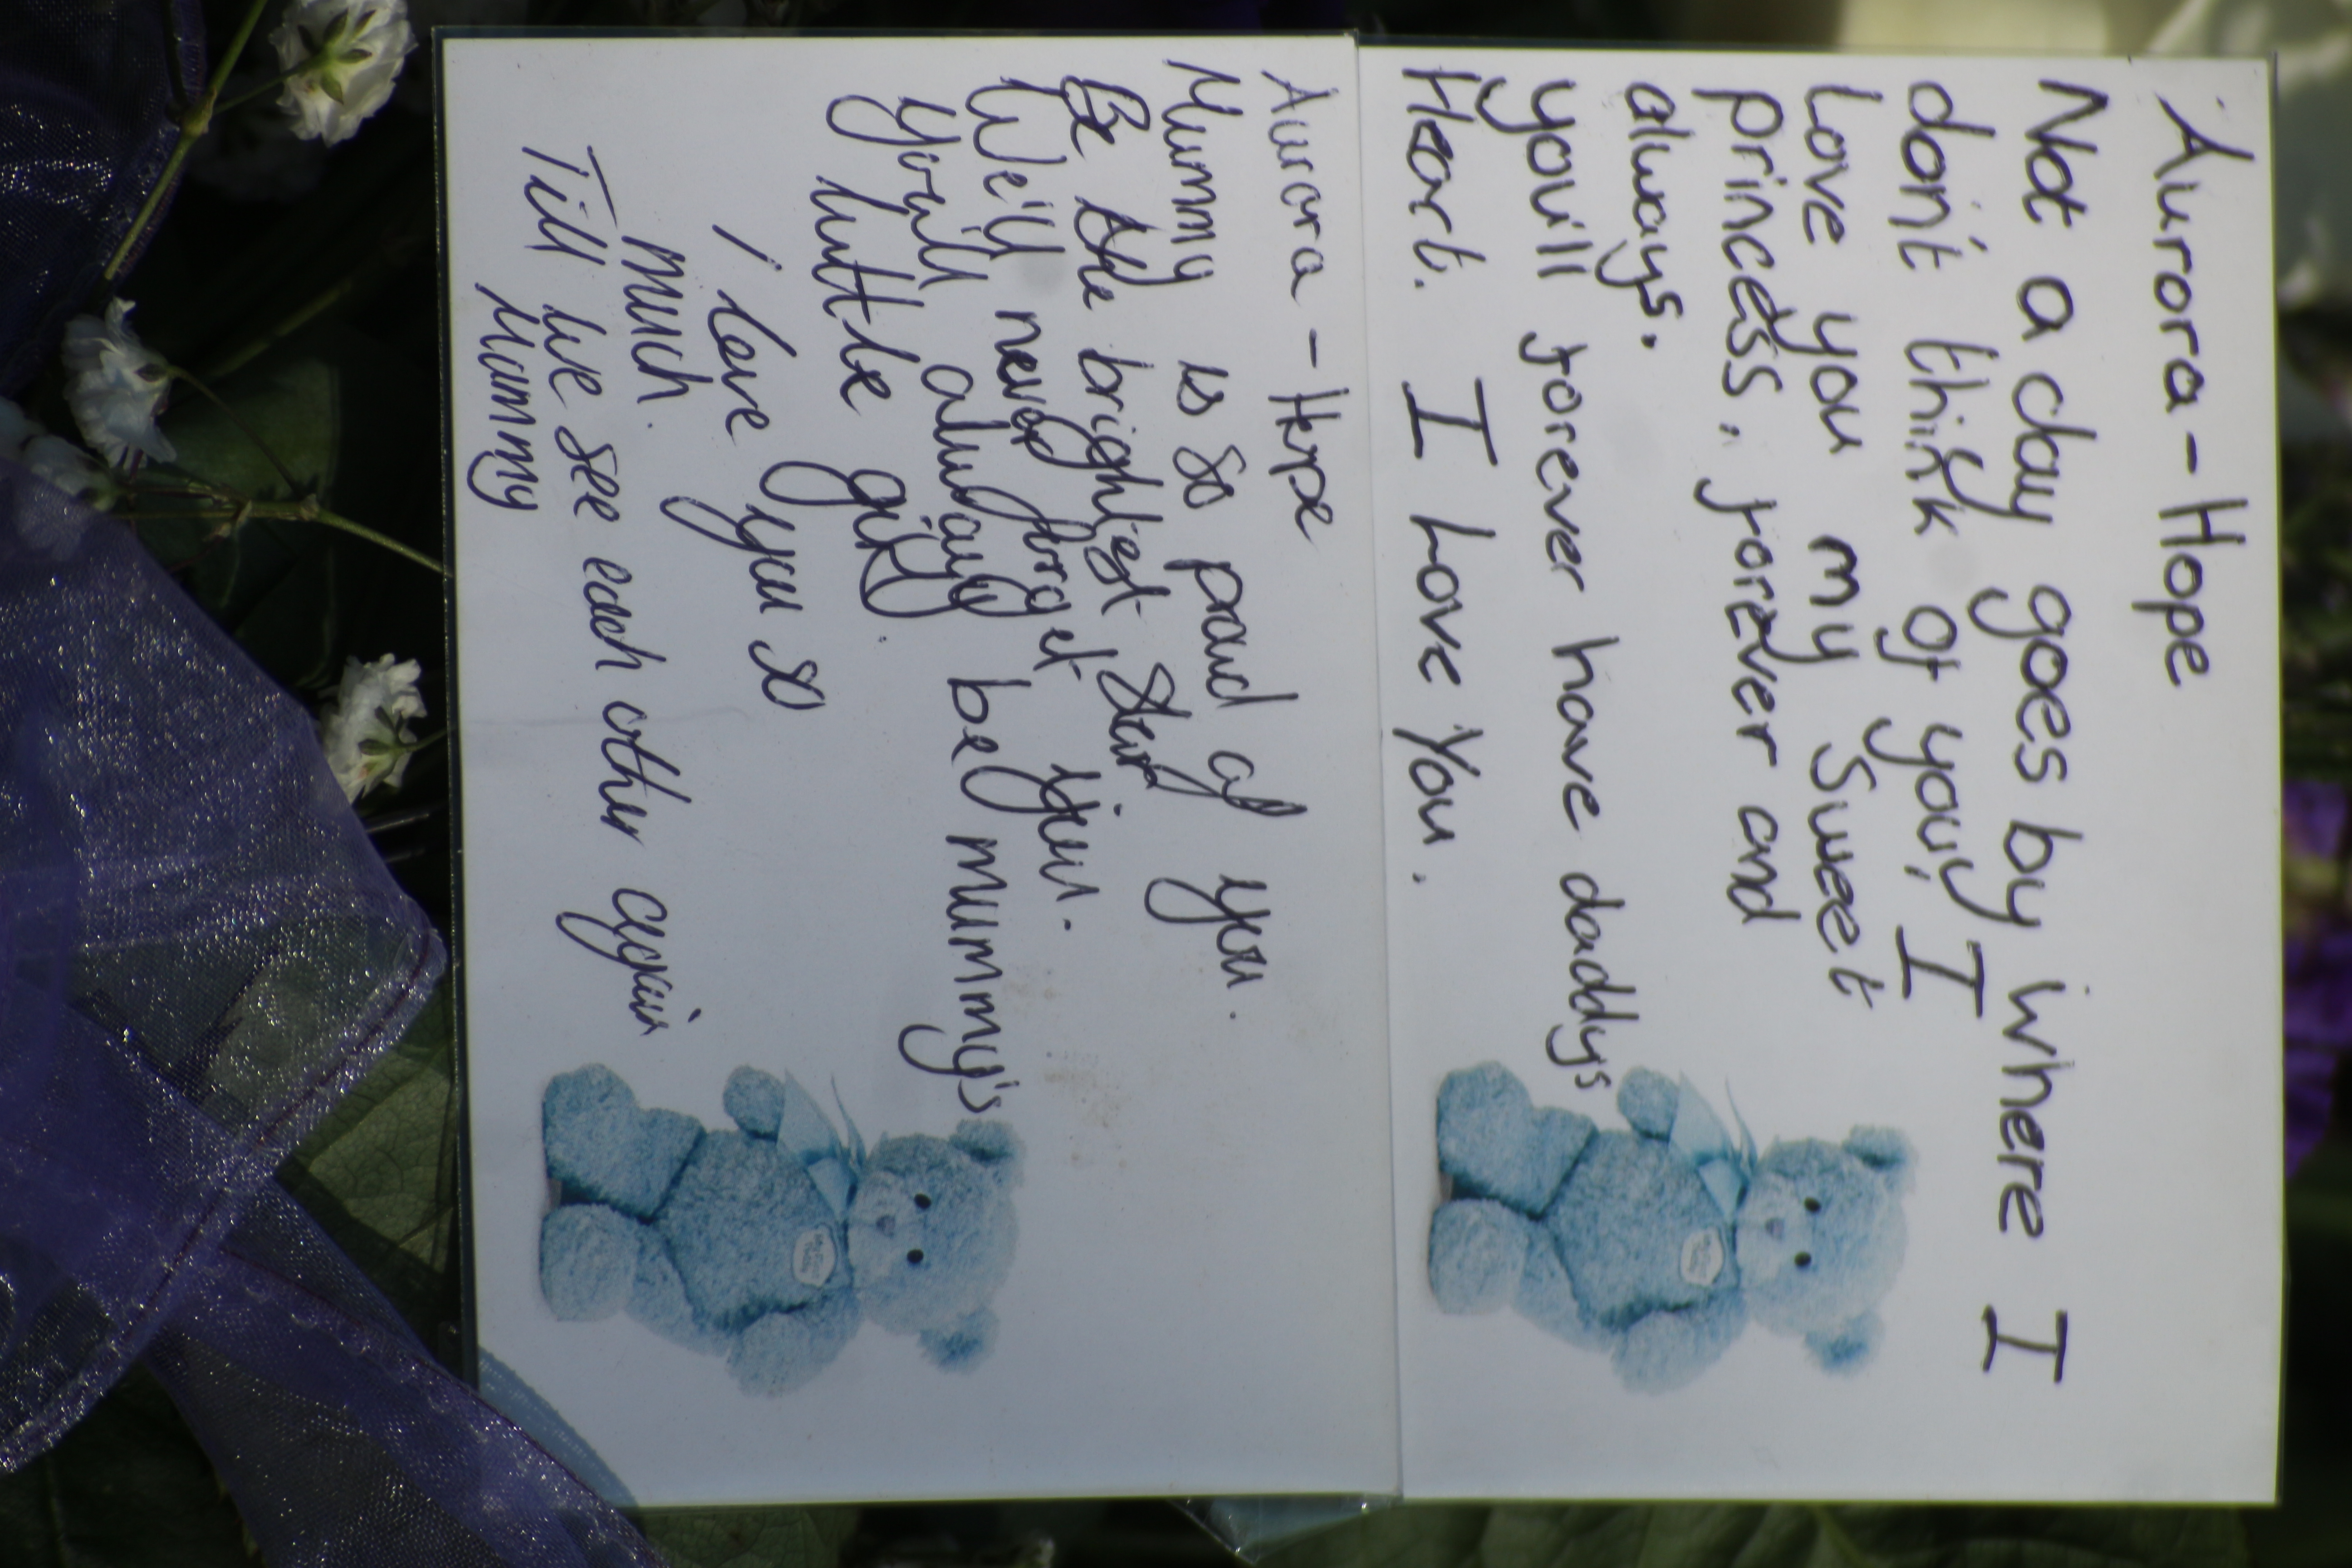 Aurora - Hope
Not a day goes by where I
don't think of you, I
Love you my Sweet
princess, forever and
always.
you'll forever have daddys
Heart. I Love You.
Aurora - Hope
Mummy is so proud of you.
Be the brightest star
We'll never forget you.
You'll always be mummy's
little girl.
I love you so
much.
Till we see each other again
Mummy